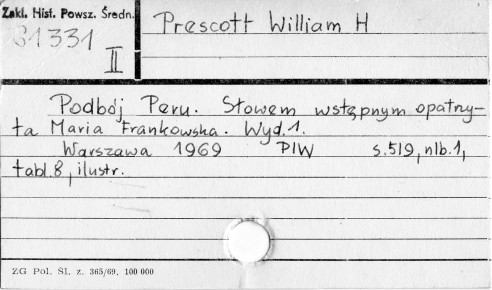 Zakł. Hist. Powsz. Średn.
31331
II
Prescott William H
Podbój Peru. Słowem wstępnym opatrzy-
ła Maria Frankowska. Wyd.1.
Warszawa 1969 PIW s.519, nlb.1,
tabl.8, ilustr.
ZG Pol. Śl. z. 365/69. 100 000